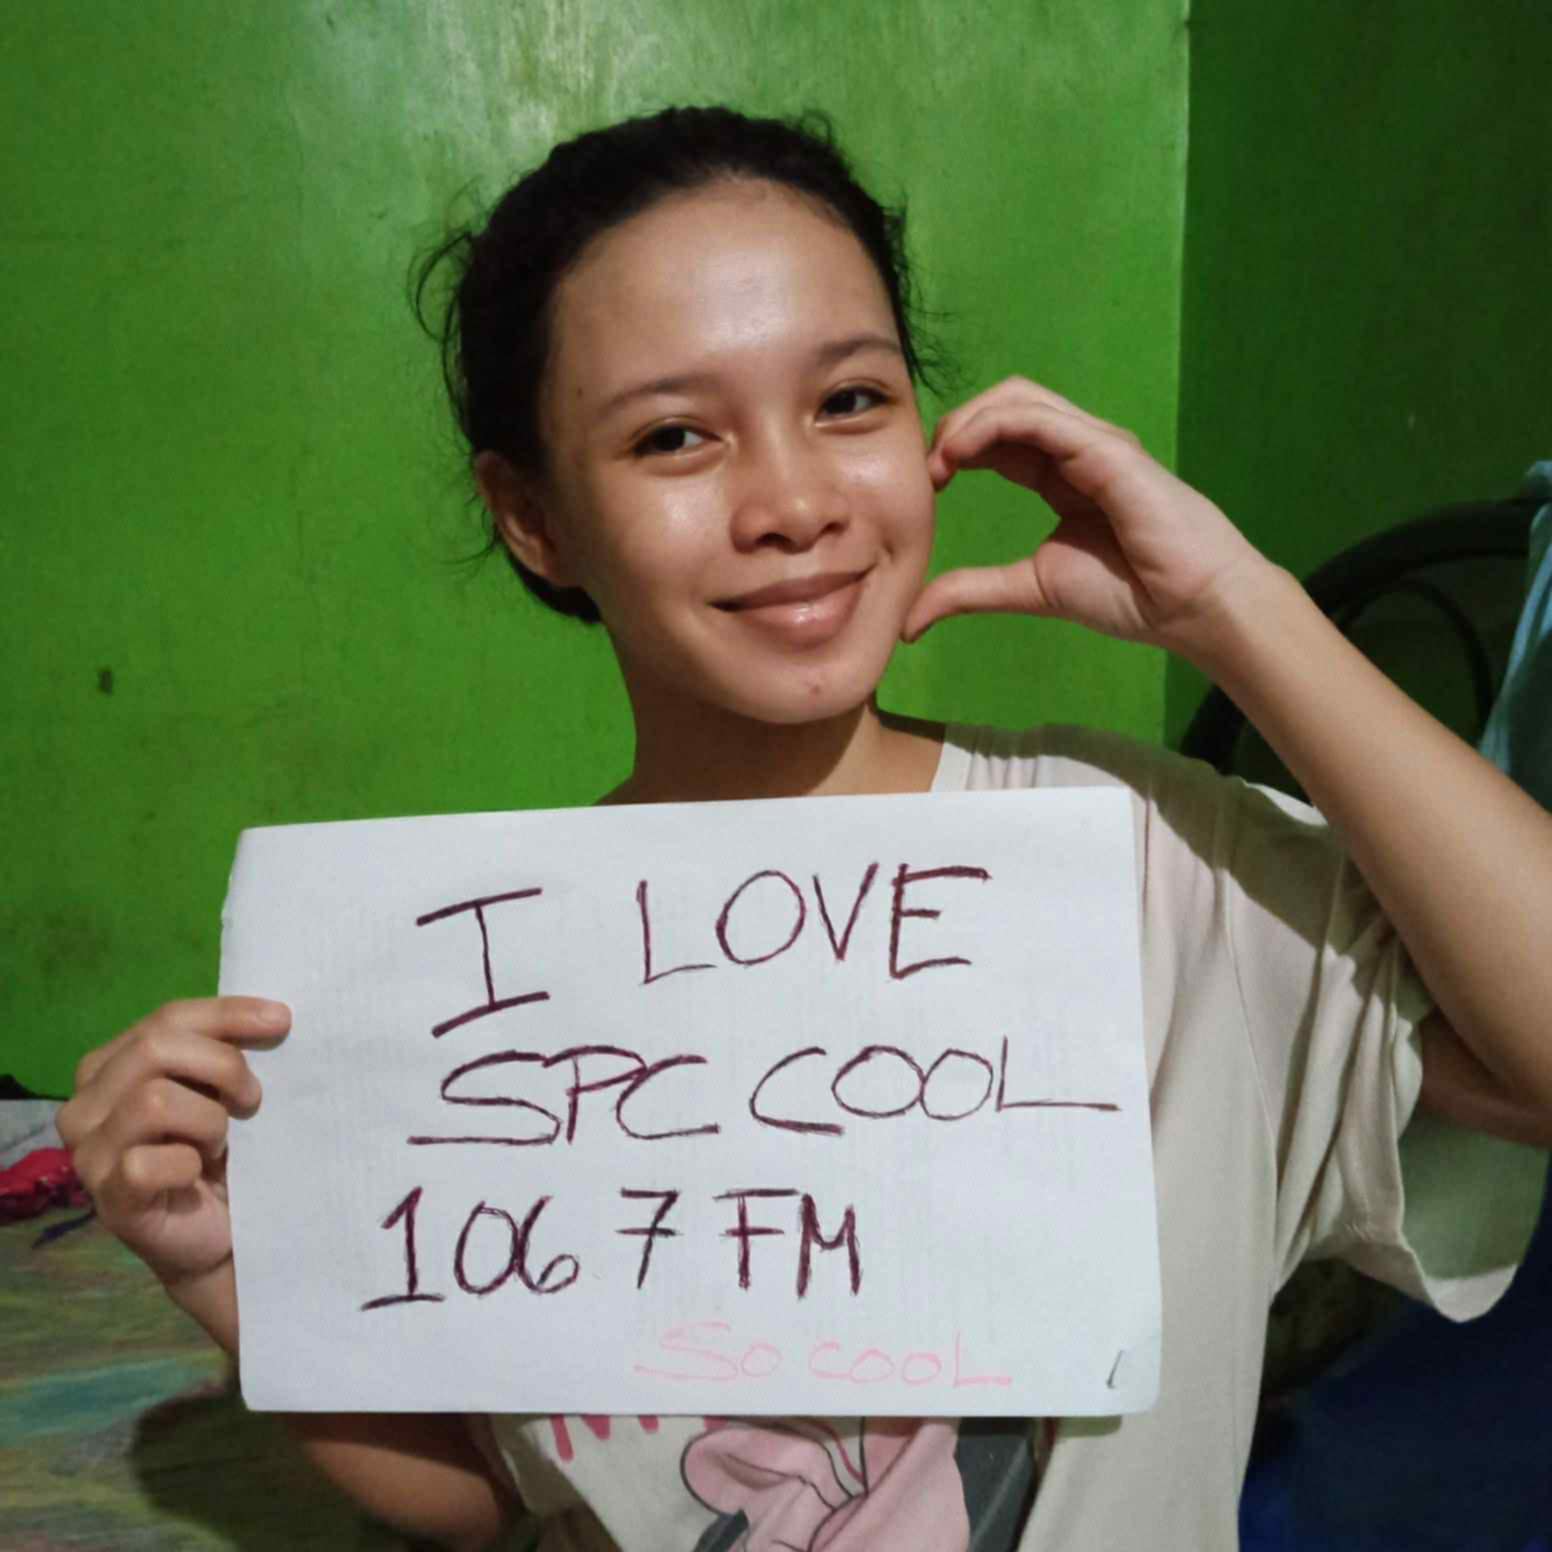 I LOVE
SPC COOL
106 7 FM
SO COOL